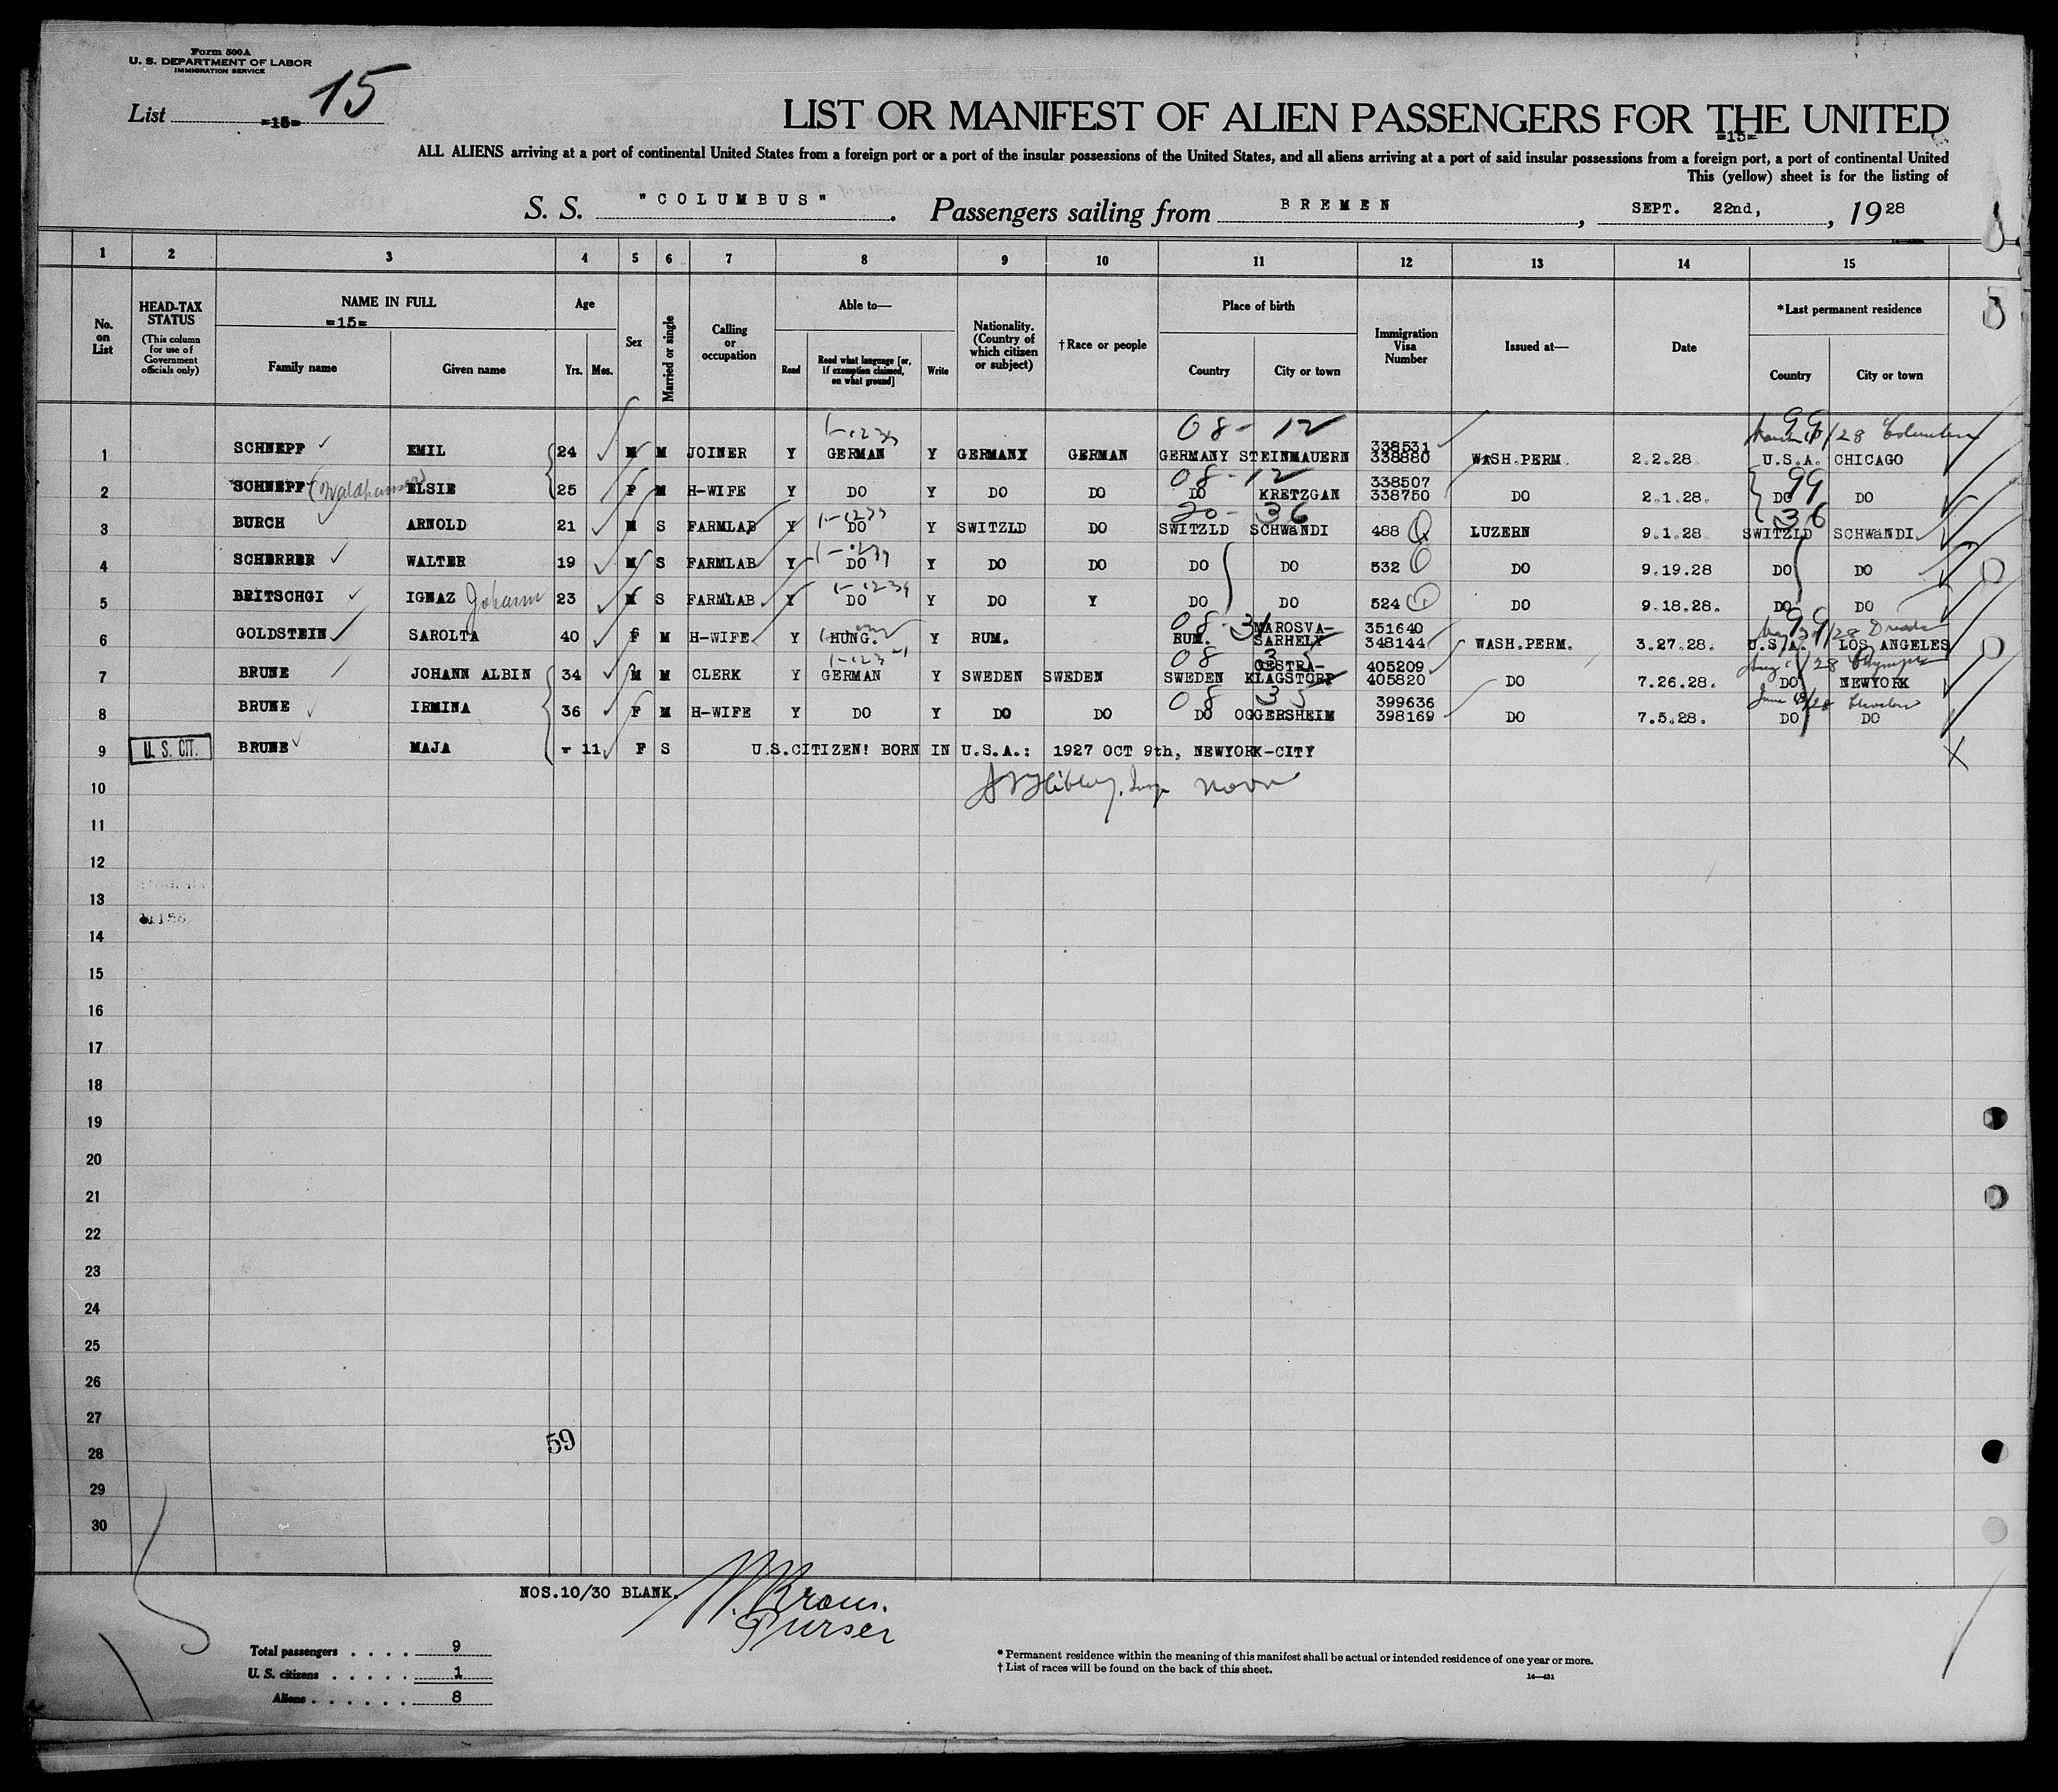 Form 500A
U. S. DEPARTMENT OF LABOR
IMMIGRATION SERVICE
List =15= 15
LIST OR MANIFEST OF ALIEN PASSENGERS FOR THE UNITED
=15=
ALL ALIENS arriving at a port of continental United States from a foreign port or a port of the insular possessions of the United States, and all aliens arriving at a port of said insular possessions from a foreign port, a port of continental United
This (yellow) sheet is for the listing of
S. S. "COLUMBUS" . Passengers sailing from BREMEN , SEPT. 22nd, , 1928
1 2 3 4 5 6 7 8 9 10 11 12 13 14 15
No. on List
HEAD-TAX STATUS
(This column for use of Government officials only)
NAME IN FULL
=15=
Family name Given name
Age
Yrs. Mos.
Sex
Married or single
Calling or occupation
Able to—
Read
Read what language [or, if exemption claimed, on what ground]
Write
Nationality. (Country of which citizen or subject)
† Race or people
Place of birth
Country City or town
Immigration Visa Number
Issued at—
Date
*Last permanent residence
Country City or town
08- 12 99
1 SCHNEPF EMIL 24 M M JOINER Y GERMAN Y GERMANY GERMAN GERMANY STEINMAUERN 338531 338880 WASH.PERM 2.2.28 U.S.A. CHICAGO
08-12 99
2 SCHNEPF ELSIE 25 F M H-WIFE Y DO Y DO DO DO KRETZGAN 338507 338750 DO 2.1.28. DO DO
20- 36 36
3 BURCH ARNOLD 21 M S FARMLAB Y DO Y SWITZLD DO SWITZLD SCHWaNDI 488 LUZERN 9.1.28 SWITZLD SCHWaNDI
4 SCHERRER WALTER 19 M S FARMLAB Y DO Y DO DO DO DO 532 DO 9.19.28 DO DO
5 BRITSCHGI IGNAZ Johann 23 M S FARMLAB Y DO Y DO Y DO DO 524 DO 9.18.28. DO DO
08-31 99
6 GOLDSTEIN SAROLTA 40 F M H-WIFE Y HUNG. Y RUM. RUM. MAROSVA-SARHELY 351640 348144 WASH.PERM. 3.27.28. U.S.A. LOS ANGELES
08 35
7 BRUNE JOHANN ALBIN 34 M M CLERK Y GERMAN Y SWEDEN SWEDEN SWEDEN OESTRA-KLAGSTORP 405209 405820 DO 7.26.28. DO NEWYORK
08 35
8 BRUNE IRMINA 36 F M H-WIFE Y DO Y DO DO DO OGGERSHEIM 399636 398169 DO 7.5.28. DO DO
9 U. S. CIT. BRUNE MAJA - 11 F S U.S.CITIZEN! BORN IN U.S.A.: 1927 OCT 9th, NEWYORK-CITY
10
11
12
13
14
15
16
17
18
19
20
21
22
23
24
25
26
27
59
28
29
30
NOS.10/30 BLANK.
Purser
Total passengers . . . . 9
U. S. citizens . . . . . 1
Aliens . . . . . . 8
* Permanent residence within the meaning of this manifest shall be actual or intended residence of one year or more.
† List of races will be found on the back of this sheet.
14—431